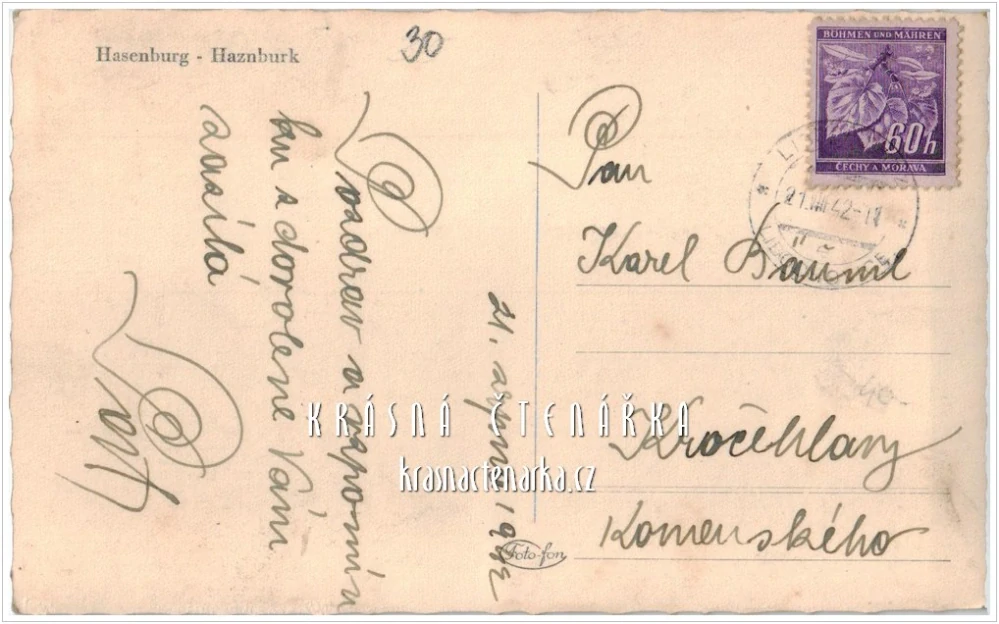 Hasenburg - Haznburk
30
BÖHMEN UND MÄHREN
60h
ČECHY A MORAVA
21.VIII.42-
Pan
Karel Bauml
Kročehlavy
Komenského
21. srpna 1942
Pozdrav a vzpomín
ku z dovolené Vám
zasílá
Foto-fon
KRÁSNÁ ČTENÁŘKA
krasnactenarka.cz